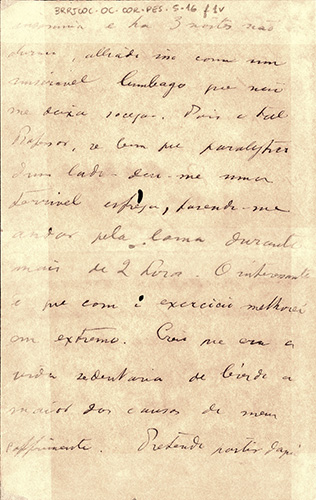 BR RJCOC-OC-COR-PES-S-16 f 1v
e ha 3 noites não
com um
miseravel lumbago que não
me deixa socegar. Pois o tal
Professor, se bem que
dum lado deu-me uma
terrivel esfrega, fazendo-me
andar pela lama durante
mais de 2 horas. O interessante
é que com o exercicio melhorei
em extremo. Creio que era a
vida sedentaria de lá a
maior das causas de meu
soffrimento. Pretendo partir daqui